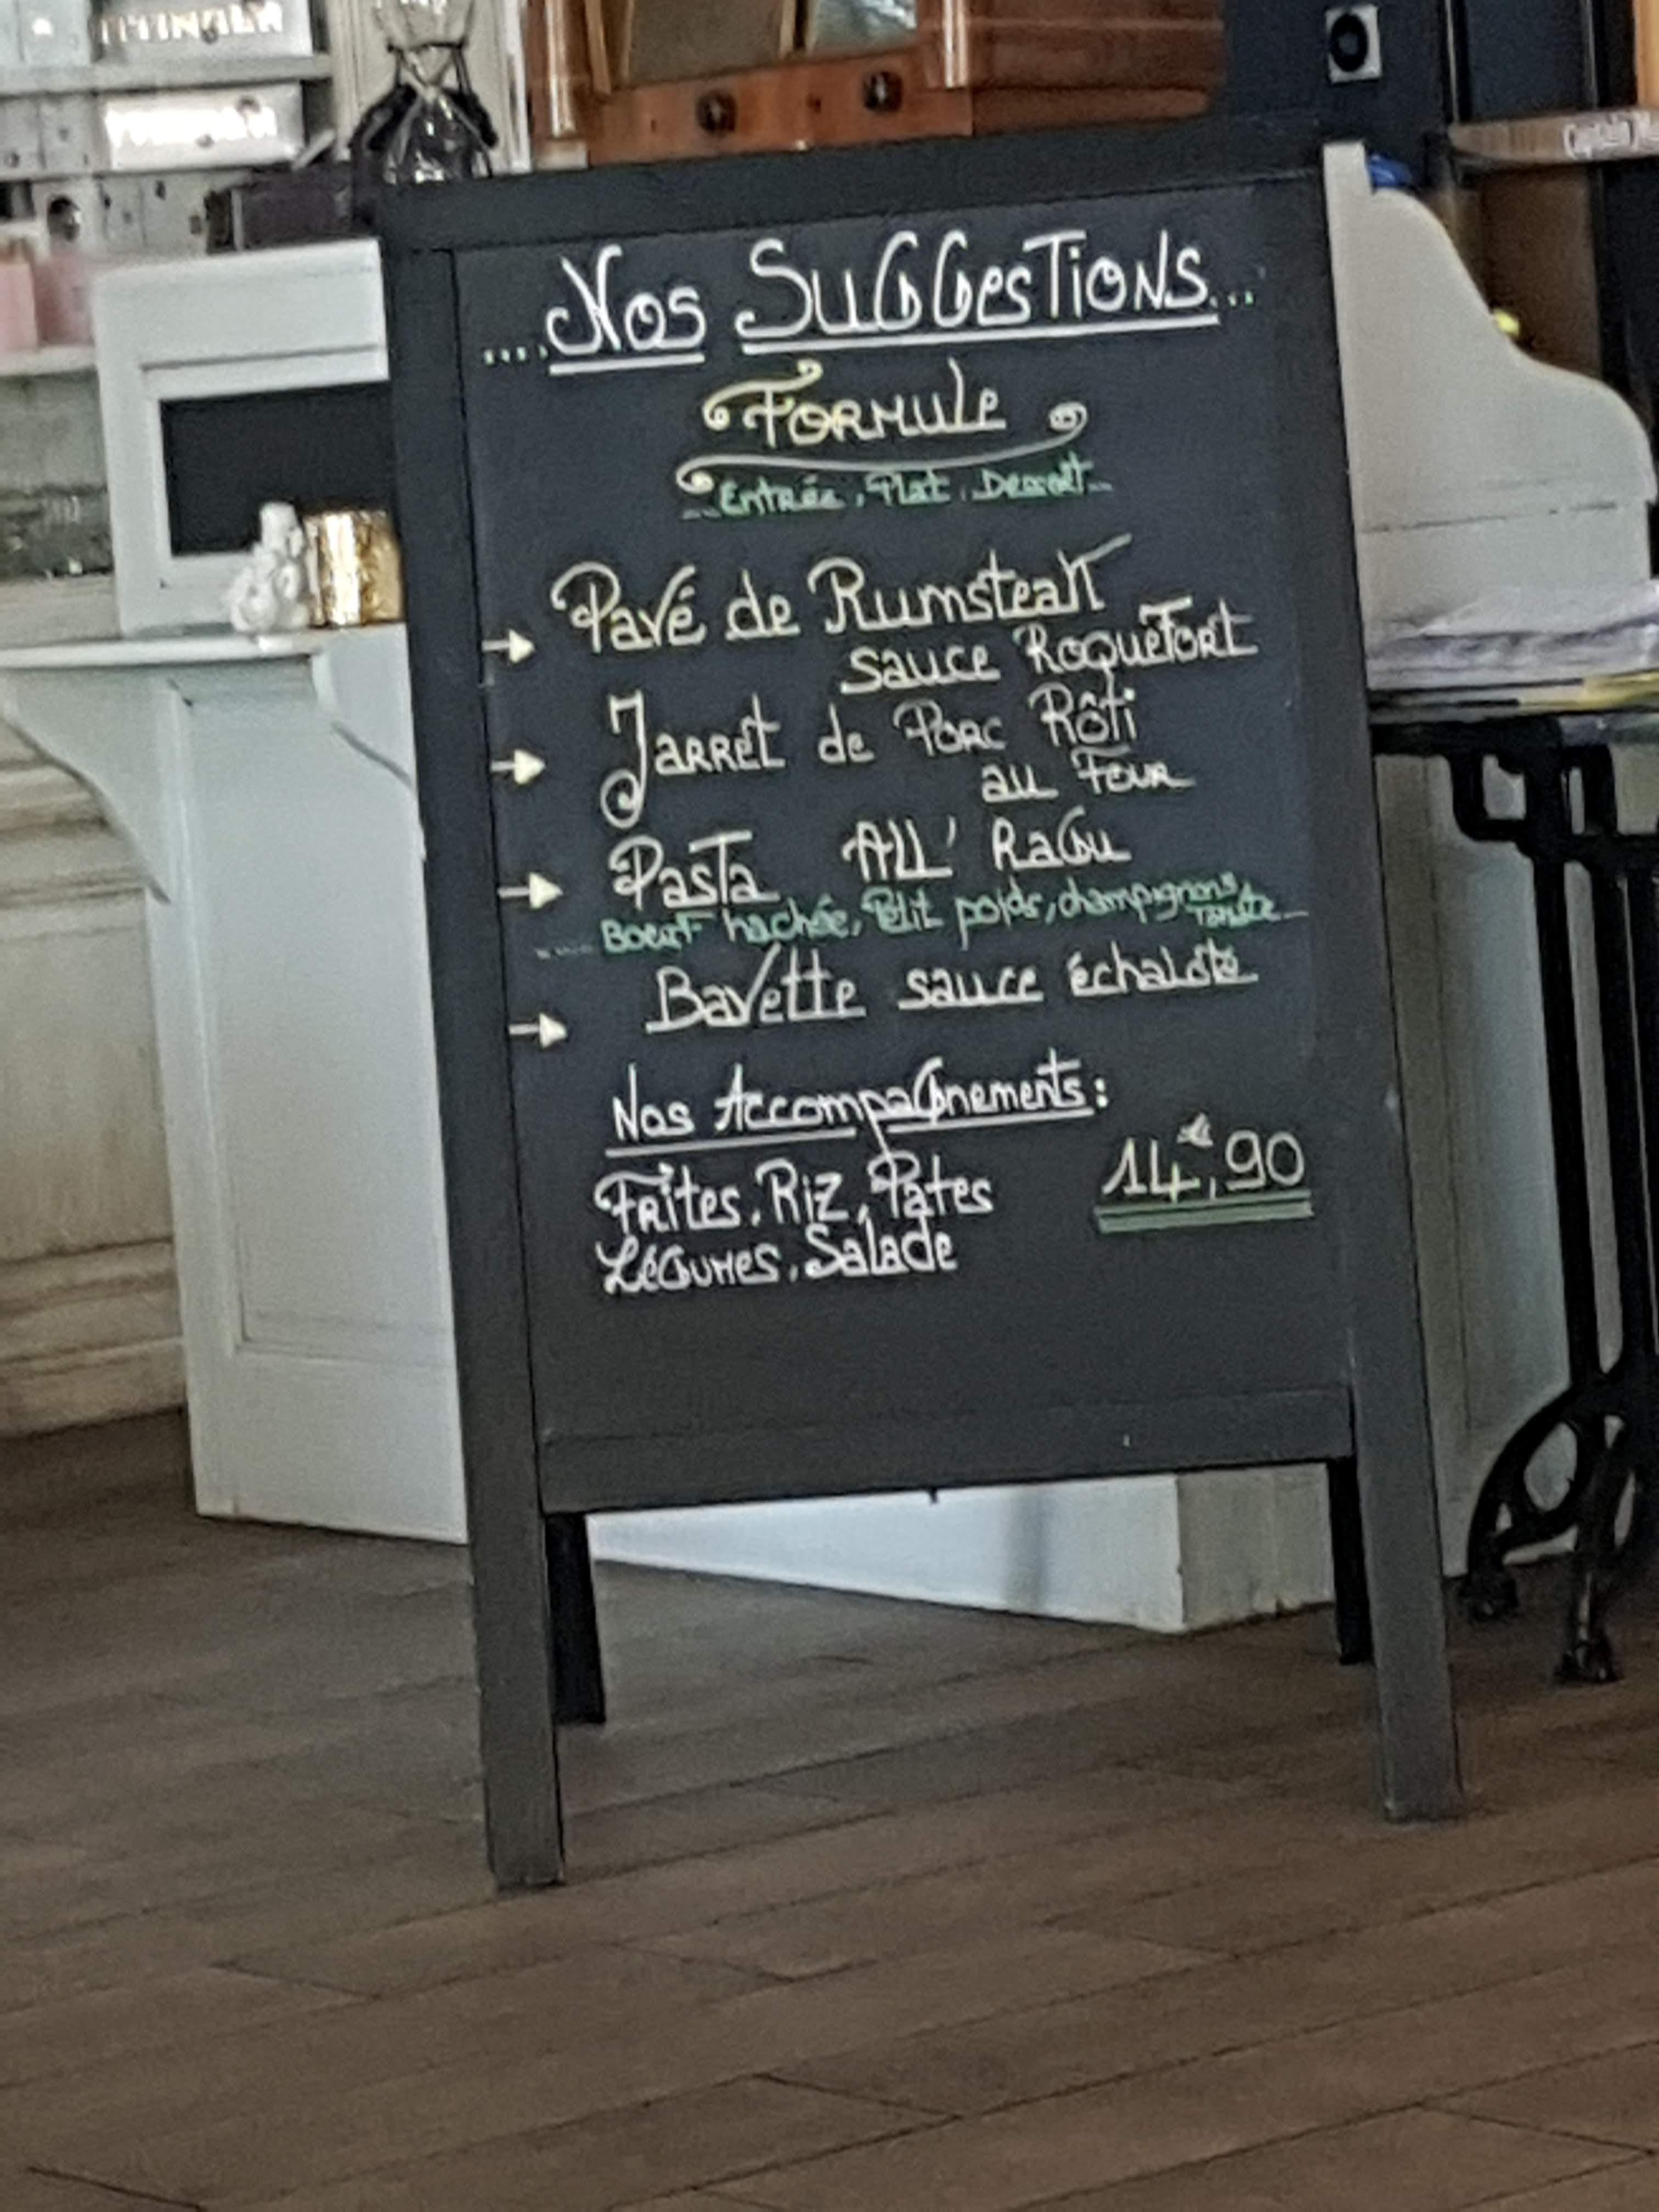 ....Nos Suggestions...
Formule
Entrée, Plat, Dessert
Pavé de Rumsteak
sauce Roquefort
Jarret de Porc Rôti
au Four
Pasta All' Ragu
Boeuf hachée, Petit poids, champignons,
Tomate
Bavette sauce échalote
Nos Accompagnements:
14€,90
Frites, Riz, Pates
Légumes, Salade